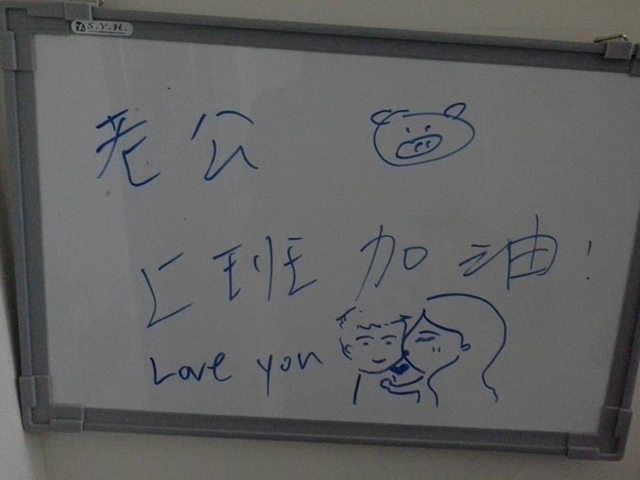 S.Y.H.
老公
上班加油!
Love you